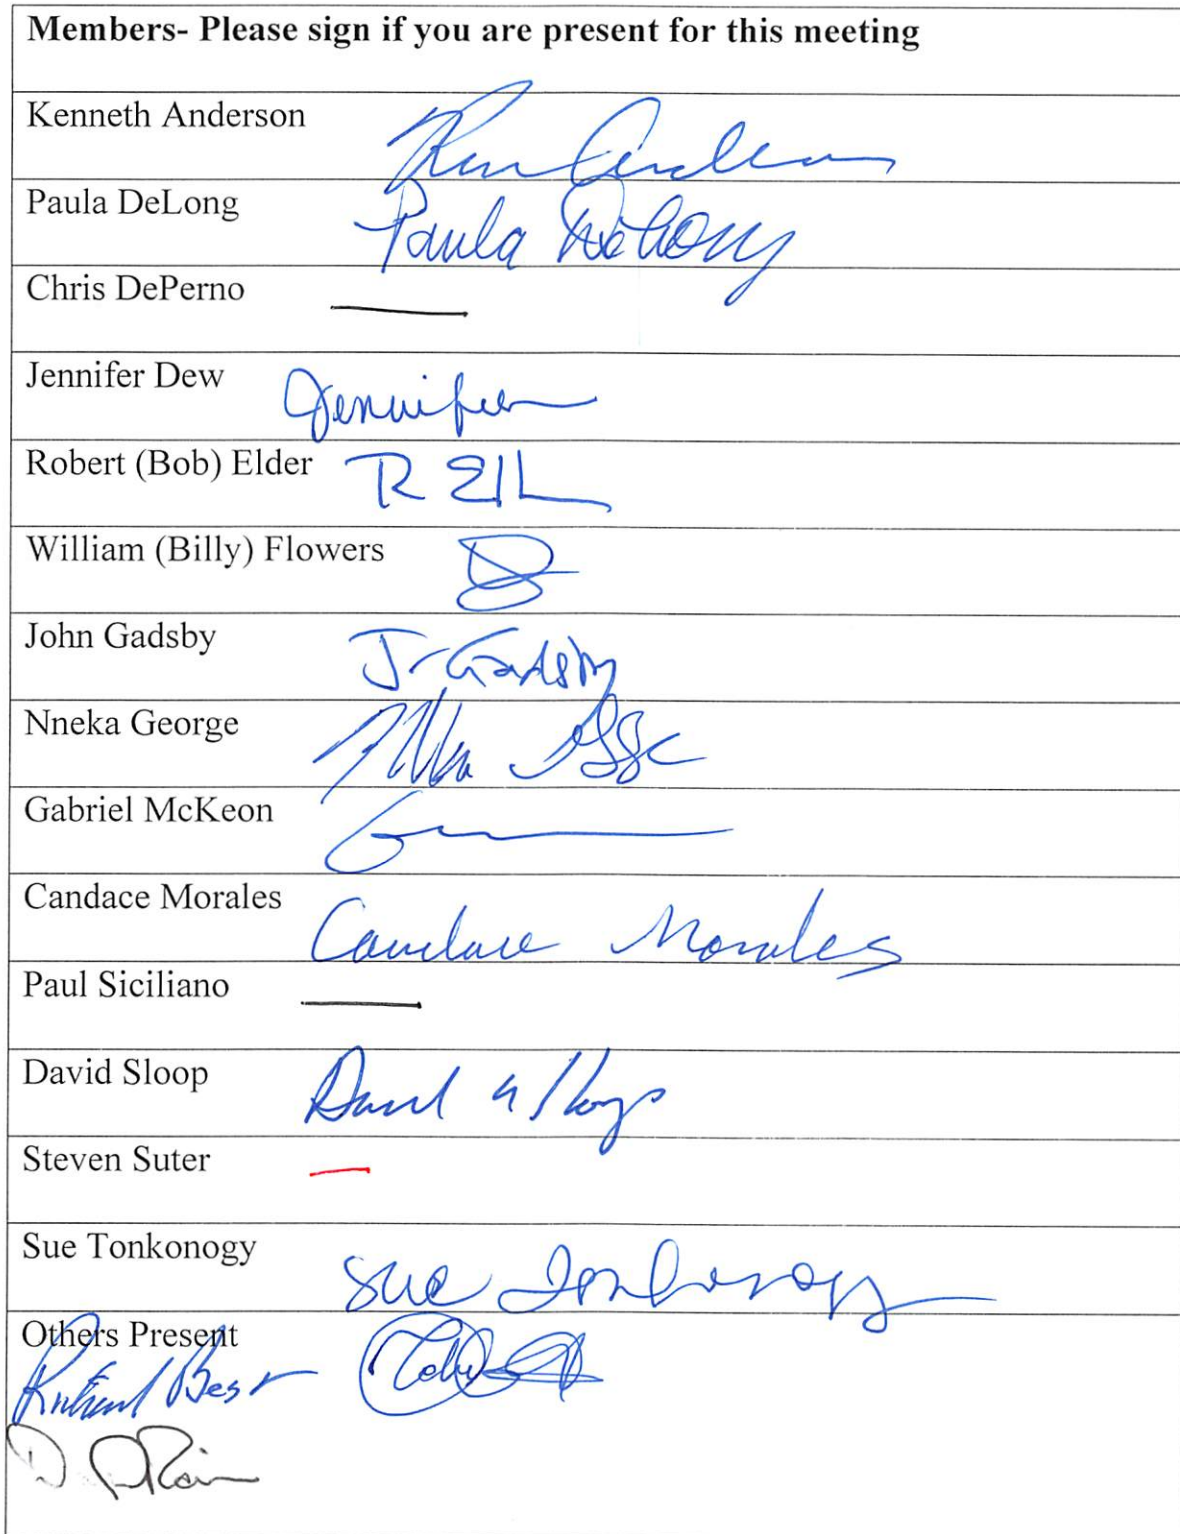 Members- Please sign if you are present for this meeting
Kenneth Anderson
Paula DeLong Paula DeLong
Chris DePerno
Jennifer Dew Jennifer
Robert (Bob) Elder R Ell
William (Billy) Flowers
John Gadsby J Gadsby
Nneka George
Gabriel McKeon
Candace Morales Candace Morales
Paul Siciliano
David Sloop David
Steven Suter
Sue Tonkonogy Sue Tonkonogy
Others Present
Richard Best